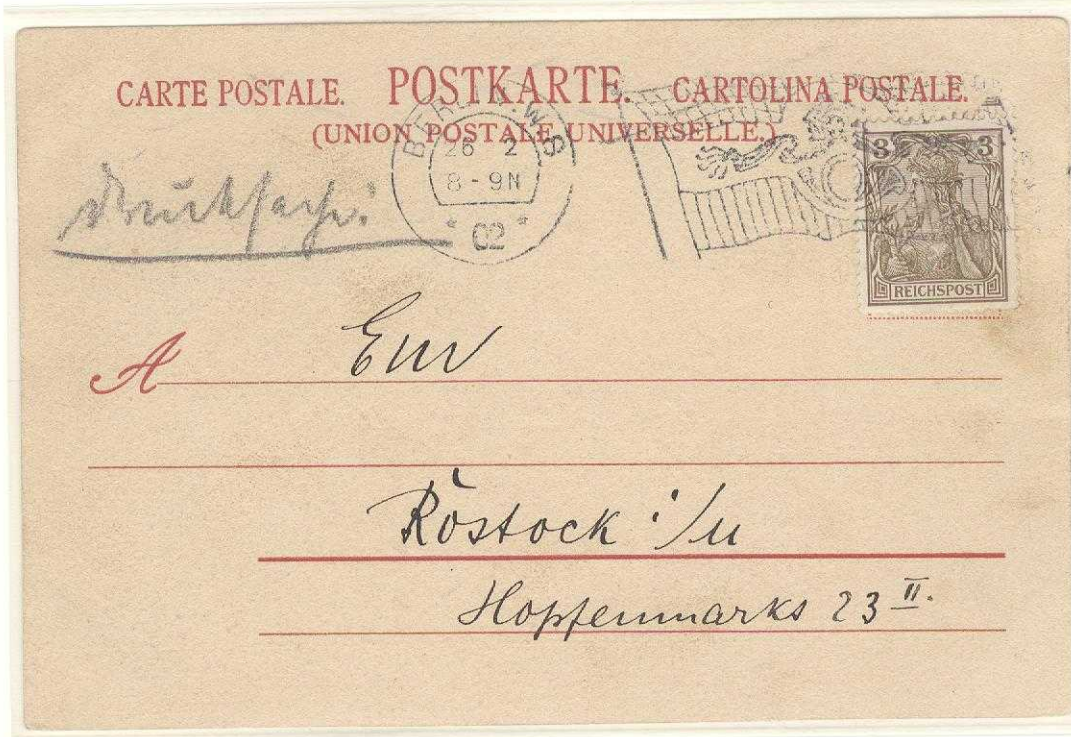 CARTE POSTALE. POSTKARTE. CARTOLINA POSTALE.
(UNION POSTALE UNIVERSELLE.)
BERLIN W
26 2
8-9N
02
3 3
REICHSPOST
Drucksache:
A
Rostock i/M
Hopfenmarks 23 II.